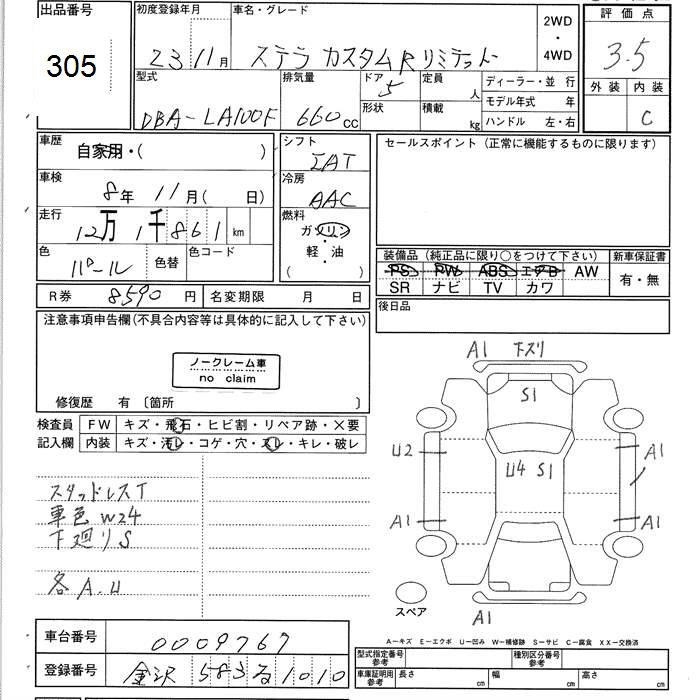 出品番号
305
初度登録年月
23 11月
車名・グレード
ステラ カスタムRリミテッド
2WD
・
4WD
評価点
3.5
外装 内装
C
型式
DBA-LA100F
排気量
660cc
ドア
5
形状
定員
人
積載
kg
ディーラー・並 行
モデル年式 年
ハンドル 左・右
車歴
自家用・( )
車検
8年 11月( 日)
走行
12万 1千861km
色
パール
色替
色コード
シフト
IAT
冷房
AAC
燃料
ガソリン
・
軽・油
( )
セールスポイント (正常に機能するものに限ります)
装備品 (純正品に限り○をつけて下さい)
PS PW ABS エアB AW
SR ナビ TV カワ
新車保証書
有・無
R券 8590円
名変期限 月 日
後日品
注意事項申告欄(不具合内容等は具体的に記入して下さい)
ノークレーム車
no claim
修復歴 有 〔箇所 〕
検査員
記入欄
FW キズ・飛石・ヒビ割・リペア跡・×要
内装 キズ・汚レ・コゲ・穴・スレ・キレ・破レ
スタッドレスT
車色 W24
下廻りS
各A.U
A1 下ズリ
S1
U2
U4 S1
A1
A1
A1
A1
スペア
A-キズ E-エクボ U-凹み W-補修跡 S-サビ C-腐食 XX-交換済
車台番号
0009767
登録番号
金沢 583る1010
型式指定番号
参考
種別区分番号
参考
車庫証明用
参考
長さ cm
幅 cm
高さ cm